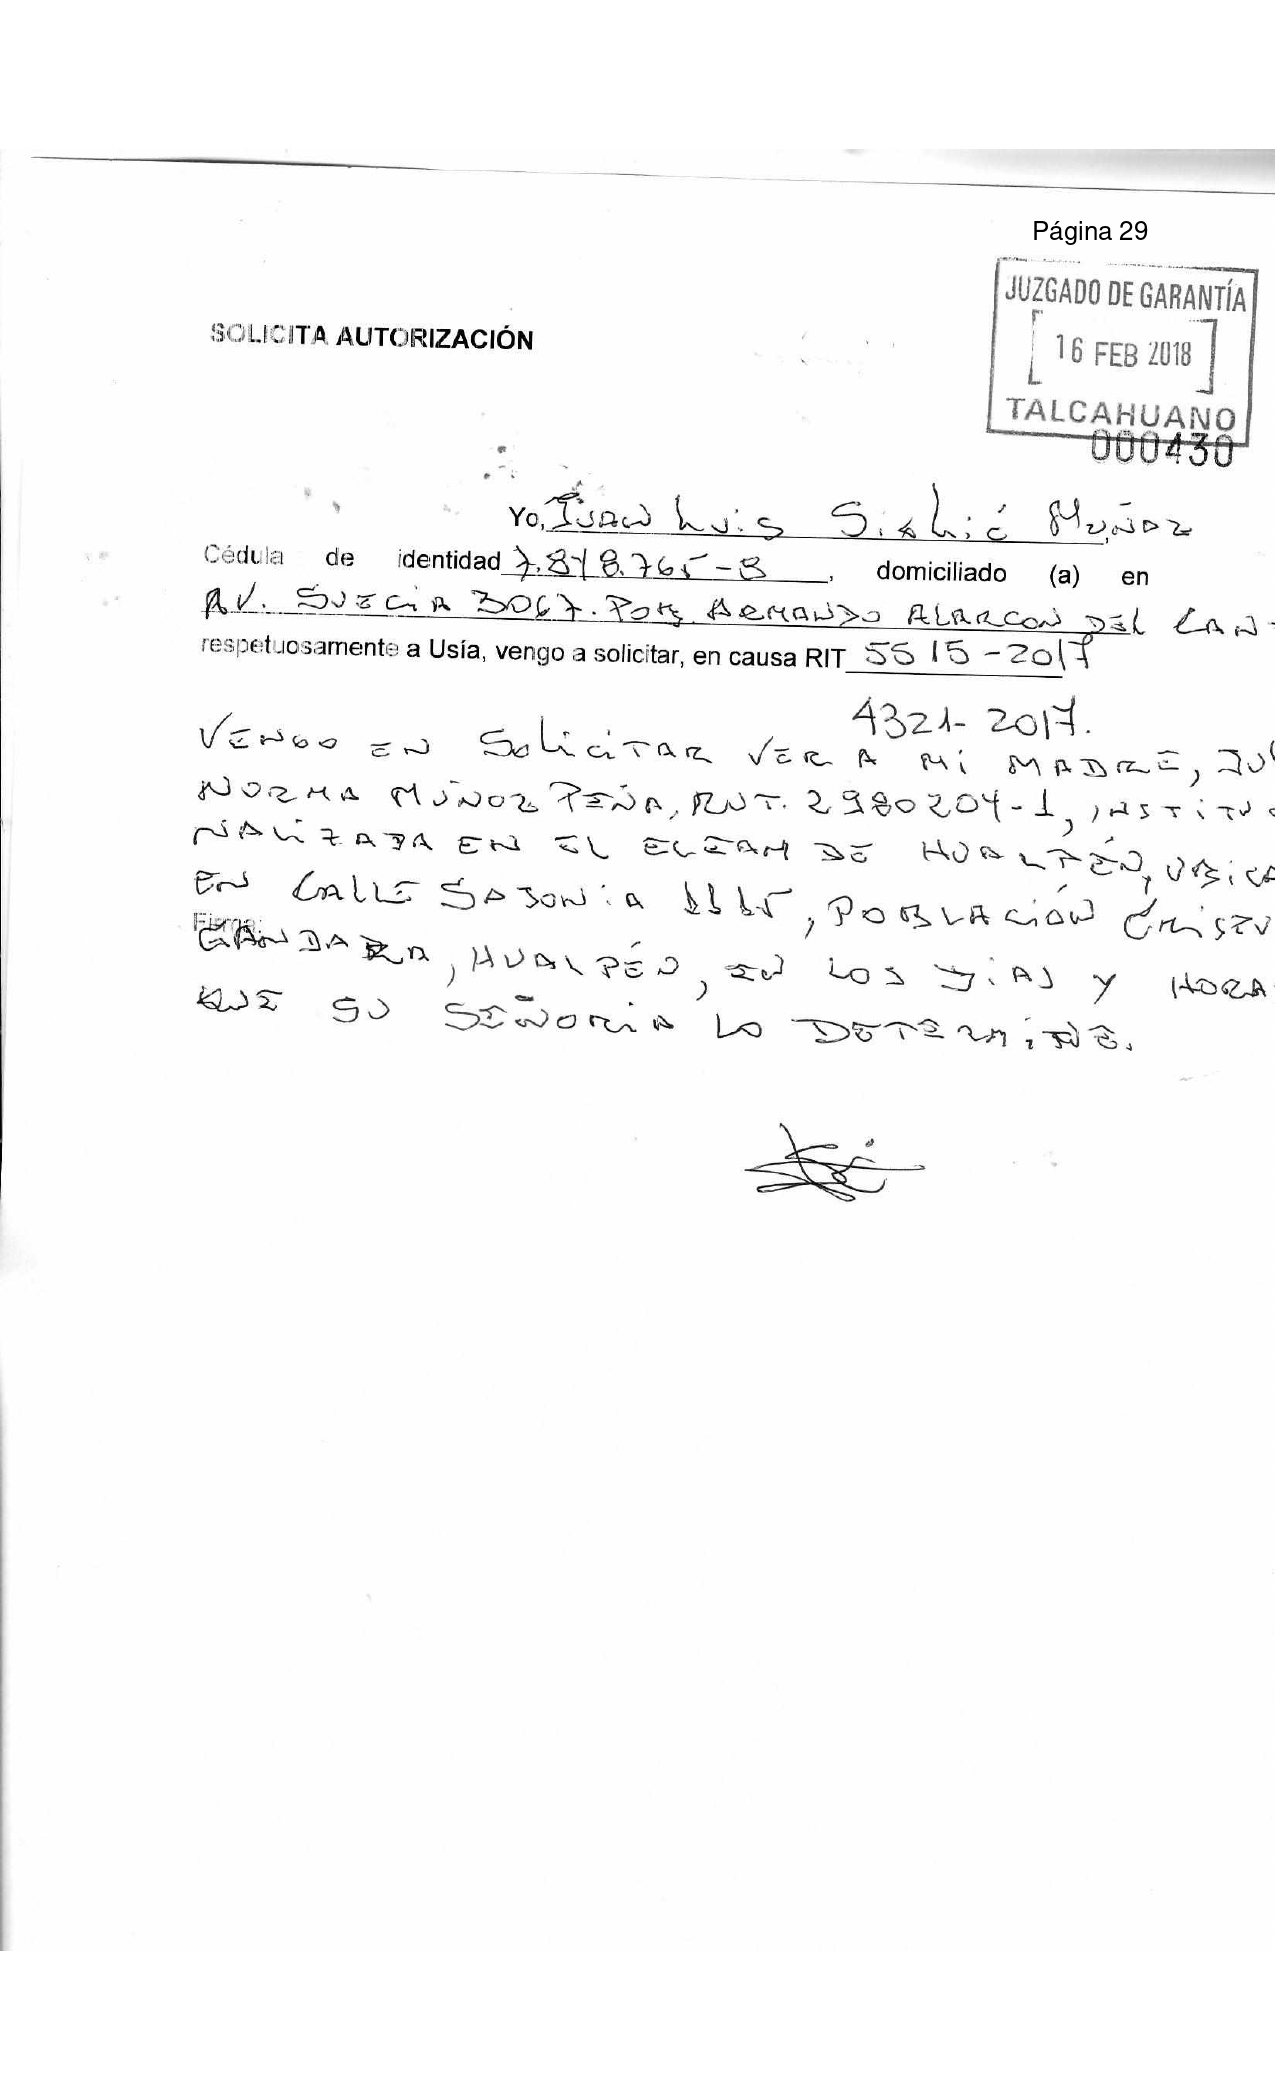 Página 29
JUZGADO DE GARANTÍA
16 FEB 2018
TALCAHUANO
000430
SOLICITA AUTORIZACIÓN
Yo, Luis Muñoz
Cédula de identidad 7.848.765-8, domiciliado (a) en
AV. SUECIA 3067. ARMANDO ALARCON DEL CAN
respetuosamente a Usía, vengo a solicitar, en causa RIT 5515-2017
4321-2017.
VENGO EN SOLICITAR VER A MI MADRE,
NORMA MUÑOZ PEÑA, RUT. 2980204-1, INSTITU
NALIZADA EN EL ELEAM DE HUALPÉN, UBICA
EN CALLE SAJONIA 1115, POBLACIÓN CRISTU
Firma:
GANDARA, HUALPÉN, EN LOS DÍAS Y HORA
QUE SU SEÑORÍA LO DETERMINE.